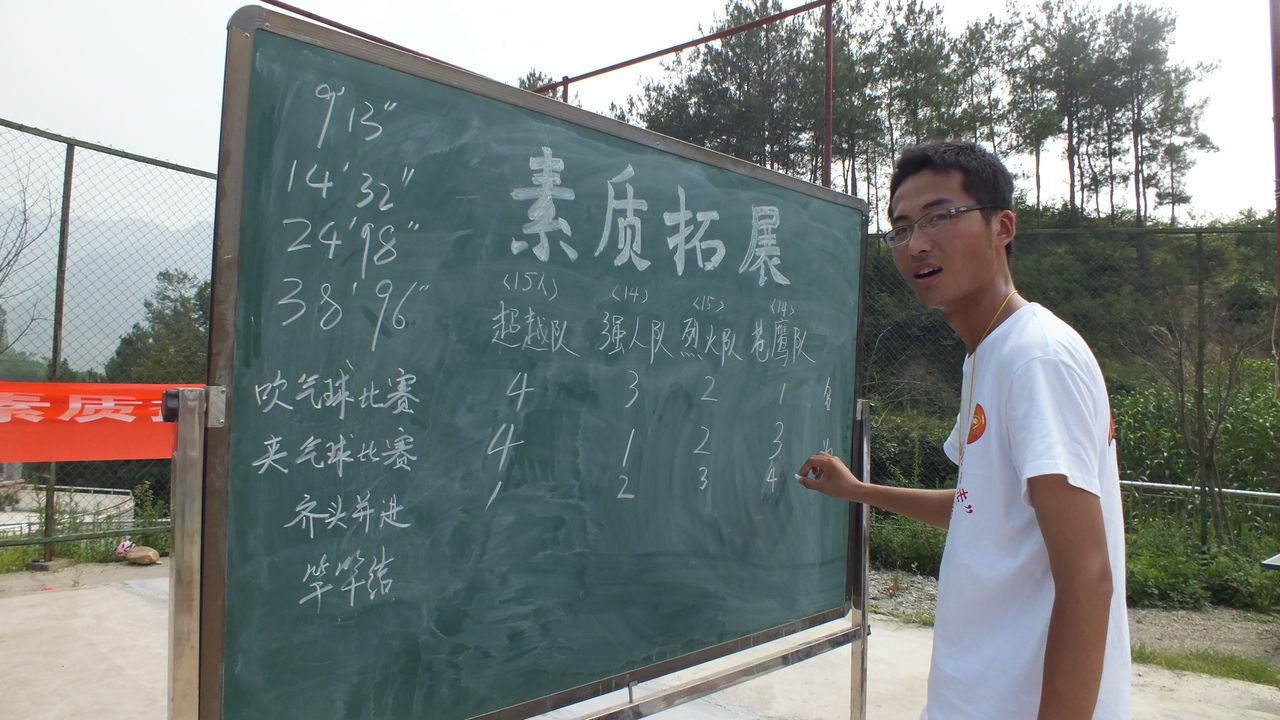 9'13"
14'32"
24'98"
38'96"
素质拓展
(15人) (14) (15) (14)
超越队 强人队 烈火队 苍鹰队
吹气球比赛 4 3 2 1
夹气球比赛 4 1 2 3
齐头并进 1 2 3 4
竿竿结
素质